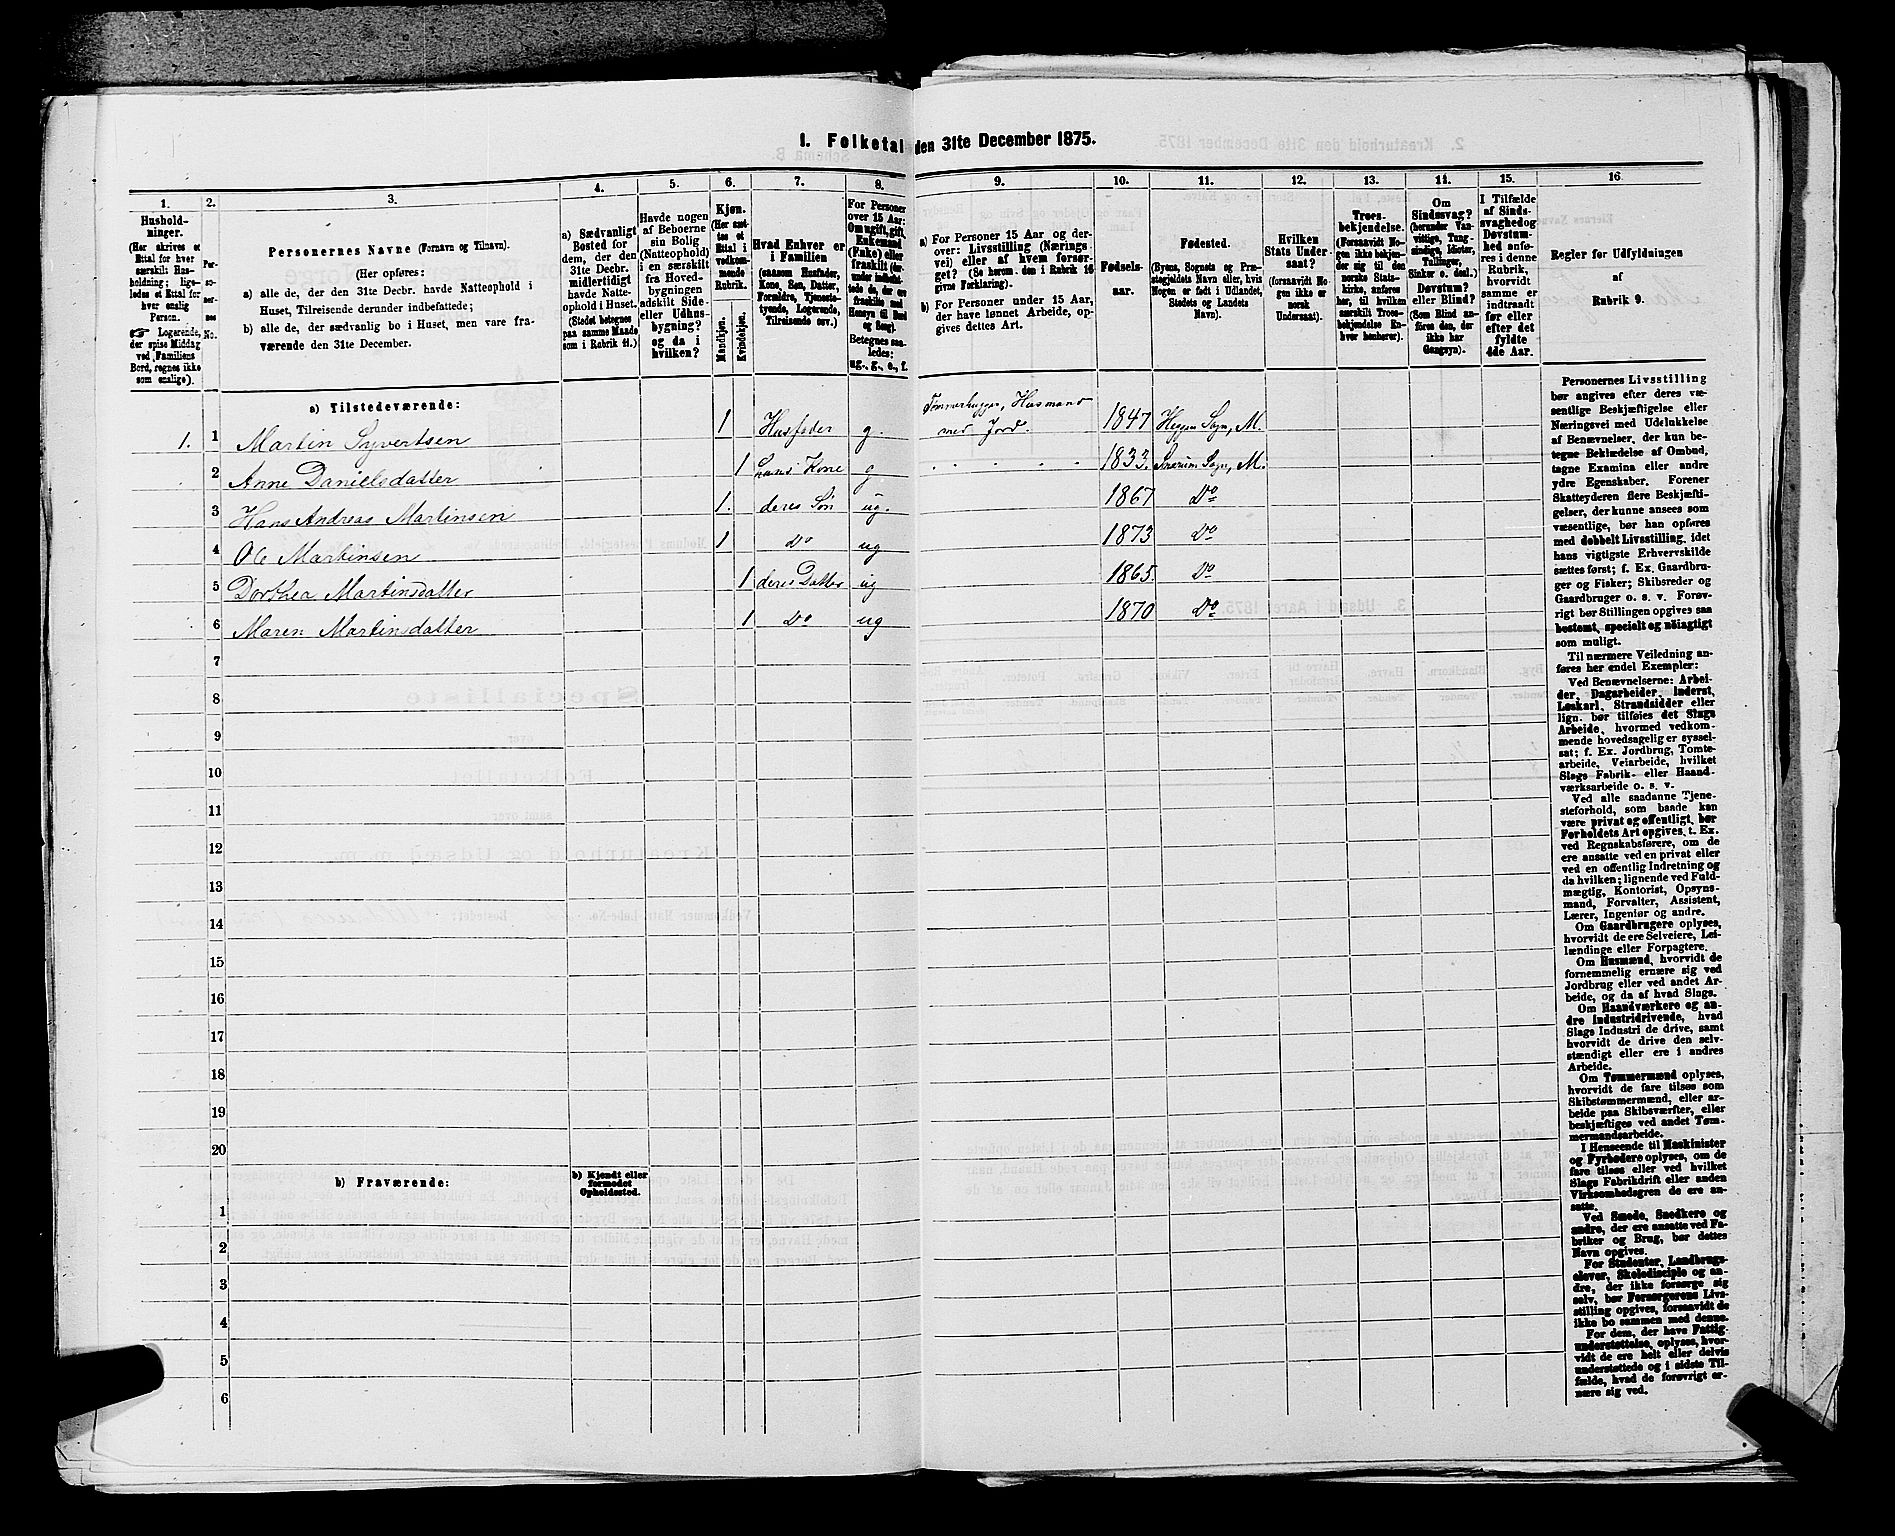 1. Folketal den 31te December 1875.
1.
Hushold-
ninger.
(Her skrives et
Ettal for hver
særskilt Hus-
holdning; lige-
ledes et Ettal for
hver enslig
Person.
☞ Logerende,
der spise Middag
ved Familiens
Bord, regnes ikke
som enslige).
2.
Per-
so-
ner-
nes
No.
3.
Personernes Navne (Fornavn og Tilnavn).
(Her opføres:
a) alle de, der den 31te Decbr. havde Natteophold i
Huset, Tilreisende derunder indbefattede;
b) alle de, der sædvanlig bo i Huset, men vare fra-
værende den 31te December.
4.
a) Sædvanligt
Bosted for
dem, der den
31te Decbr.
midlertidigt
havde Natte-
ophold i Huset.
(Stedet betegnes
paa samme Maade
som i Rubrik 11.)
5.
Havde nogen
af Beboerne
sin Bolig
(Natteophold)
i en særskilt
fra Hoved-
bygningen
adskilt Side-
eller Udhus-
bygning?
og da i
hvilken?
6.
Kjøn.
(Her sæt-
tes et
Ettal i
vedkom-
mende
Rubrik.
Mandkjøn.
Kvindekjøn.
7.
Hvad Enhver er
i Familien
(saasom Husfader,
Kone, Søn, Datter,
Forældre, Tjeneste-
tyende, Logerende,
Tilreisende osv.)
8.
For Personer
over 15 Aar:
Om ugift, gift,
Enkemand
(Enke) eller
fraskilt
Betegnes saa-
ledes:
ug., g., e., f.
9.
a) For Personer 15 Aar og der-
over: Livsstilling (Nærings-
vei) eller af hvem forsør-
get? (Se herom den i Rubrik 16
givne Forklaring).
b) For Personer under 15 Aar,
der have lønnet Arbeide, op-
gives dettes Art.
10.
Fødsels-
aar.
11.
Fødested.
(Byens, Sognets og Præ-
stegjeldets Navn eller, hvis
Nogen er født i Udlandet,
Stedets og Landets
Navn).
12.
Hvilken
Stats Under-
saat?
(forsaavidt No-
gen ikke er
norsk
Undersaat).
13.
Troes-
bekjendelse.
(Forsaavidt No-
gen ikke bekjen-
der sig til den
norske Stats-
kirke, anføres
her, til hvilken
særskilt Troes-
bekjendelse En-
hver henhører).
14.
Om
Sindssvag?
(herunder Van-
vittige, Tung-
sindige, Idioter,
Tullinger,
Sinker o. desl.)
Døvstum?
eller Blind?
(Som Blind an-
føres den, der
ikke har
Gangsyn).
15.
I Tilfælde
af Sinds-
svaghed og
Døvstum-
hed anfø-
res i denne
Rubrik,
hvorvidt
samme er
indtraadt
før eller
efter det
fyldte
4de Aar.
16
Regler for Udfyldningen
af
Rubrik 9.
a) Tilstedeværende:
1. 1 Martin Syvertsen 1 Husfader g. Tømmerhugger, Husmand med Jord. 1847 Heggen Sogn, M.
2 Anne Danielsdatter 1 hans Kone g 1833. Snarum Sogn, M.
3 Hans Andreas Martinsen 1. deres Søn ug. 1867 Do
4 Ole Martinsen 1 Do ug 1873 Do
5 Dorthea Martinsdatter 1 deres Datter ug 1865. Do
6 Maren Martinsdatter 1 Do ug 1870 Do
7
8
9
10
11
12
13
14
15
16
17
18
19
20
b) Fraværende:
b) Kjendt eller
formodet
Opholdssted.
1
2
3
4
5
6
Personernes Livsstilling
bør angives efter deres væ-
sentlige Beskjæftigelse eller
Næringsvei med Udelukkelse
af Benævnelser, der kun be-
tegne Beklædelse af Ombud,
tagne Examina eller andre
ydre Egenskaber. Forener
Skatteyderen flere Beskjæfti-
gelser, der kunne ansees som
væsentlige, bør han opføres
med dobbelt Livsstilling, idet
hans vigtigste Erhvervskilde
sættes først; f. Ex. Gaardbru-
ger og Fisker; Skibsreder og
Gaardbruger o. s. v. Forøv-
rigt bør Stillingen opgives saa
bestemt, specielt og nöiagtigt
som muligt.
Til nærmere Veiledning an-
føres her endel Exempler:
Ved Benævnelserne: Arbei-
der, Dagarbeider, Inderst,
Løskarl, Strandsidder eller
lign. bør tilføies det Slags
Arbeide, hvormed vedkom-
mende hovedsagelig er syssel-
sat; f. Ex. Jordbrug, Tomte-
arbeide, Veiarbeide, hvilket
Slags Fabrik- eller Haand-
værksarbeide o. s. v.
Ved alle saadanne Tjene-
steforhold, som baade kan
være privat og offentligt, bør
Forholdets Art opgives, t. Ex.
ved Regnskabsførere, om de
ere ansatte ved en privat eller
ved en offentlig Indretning og
da hvilken; lignende ved Fuld-
mægtig, Kontorist, Opsyns-
mand, Forvalter, Assistent,
Lærer, Ingeniør og andre.
Om Gaardbrugere oplyses,
hvorvidt de ere Selveiere, Lei-
lændinge eller Forpagtere.
Om Husmænd, hvorvidt de
fornemmelig ernære sig ved
Jordbrug eller ved andet Ar-
beide, og da af hvad Slags.
Om Haandværkere og an-
dre industridrivende, hvad
Slags Industri de drive, samt
hvorvidt de drive den selv-
stændigt eller ere i andres
Arbeide.
Om Tømmermænd oplyses,
hvorvidt de fare tilsøs som
Skibstømmermænd, eller ar-
beide paa Skibsværfter, eller
beskjæftiges ved andet Tøm-
mermandsarbeide.
I Henseende til Maskinister
og Fyrbødere oplyses, om de
fare tilsøs eller ved hvilket
Slags Fabrikdrift eller anden
Virksomhedsgren de ere an-
satte.
Ved Smede, Snedkere og
andre, der ere ansatte ved Fa-
briker og Brug, bør dettes
Navn opgives.
For Studenter, Landbrugs-
elever, Skoledisciple og an-
dre, der ikke forsørge sig
selv, bør Forsørgerens Livs-
stilling opgives, forsaavidt de
ikke bo sammen med denne.
For dem, der have Fattig-
understøttelse, oplyses, hvor-
vidt de ere helt eller delvis
understøttede og i sidste Til-
fælde, hvad de forøvrigt er-
nære sig ved.